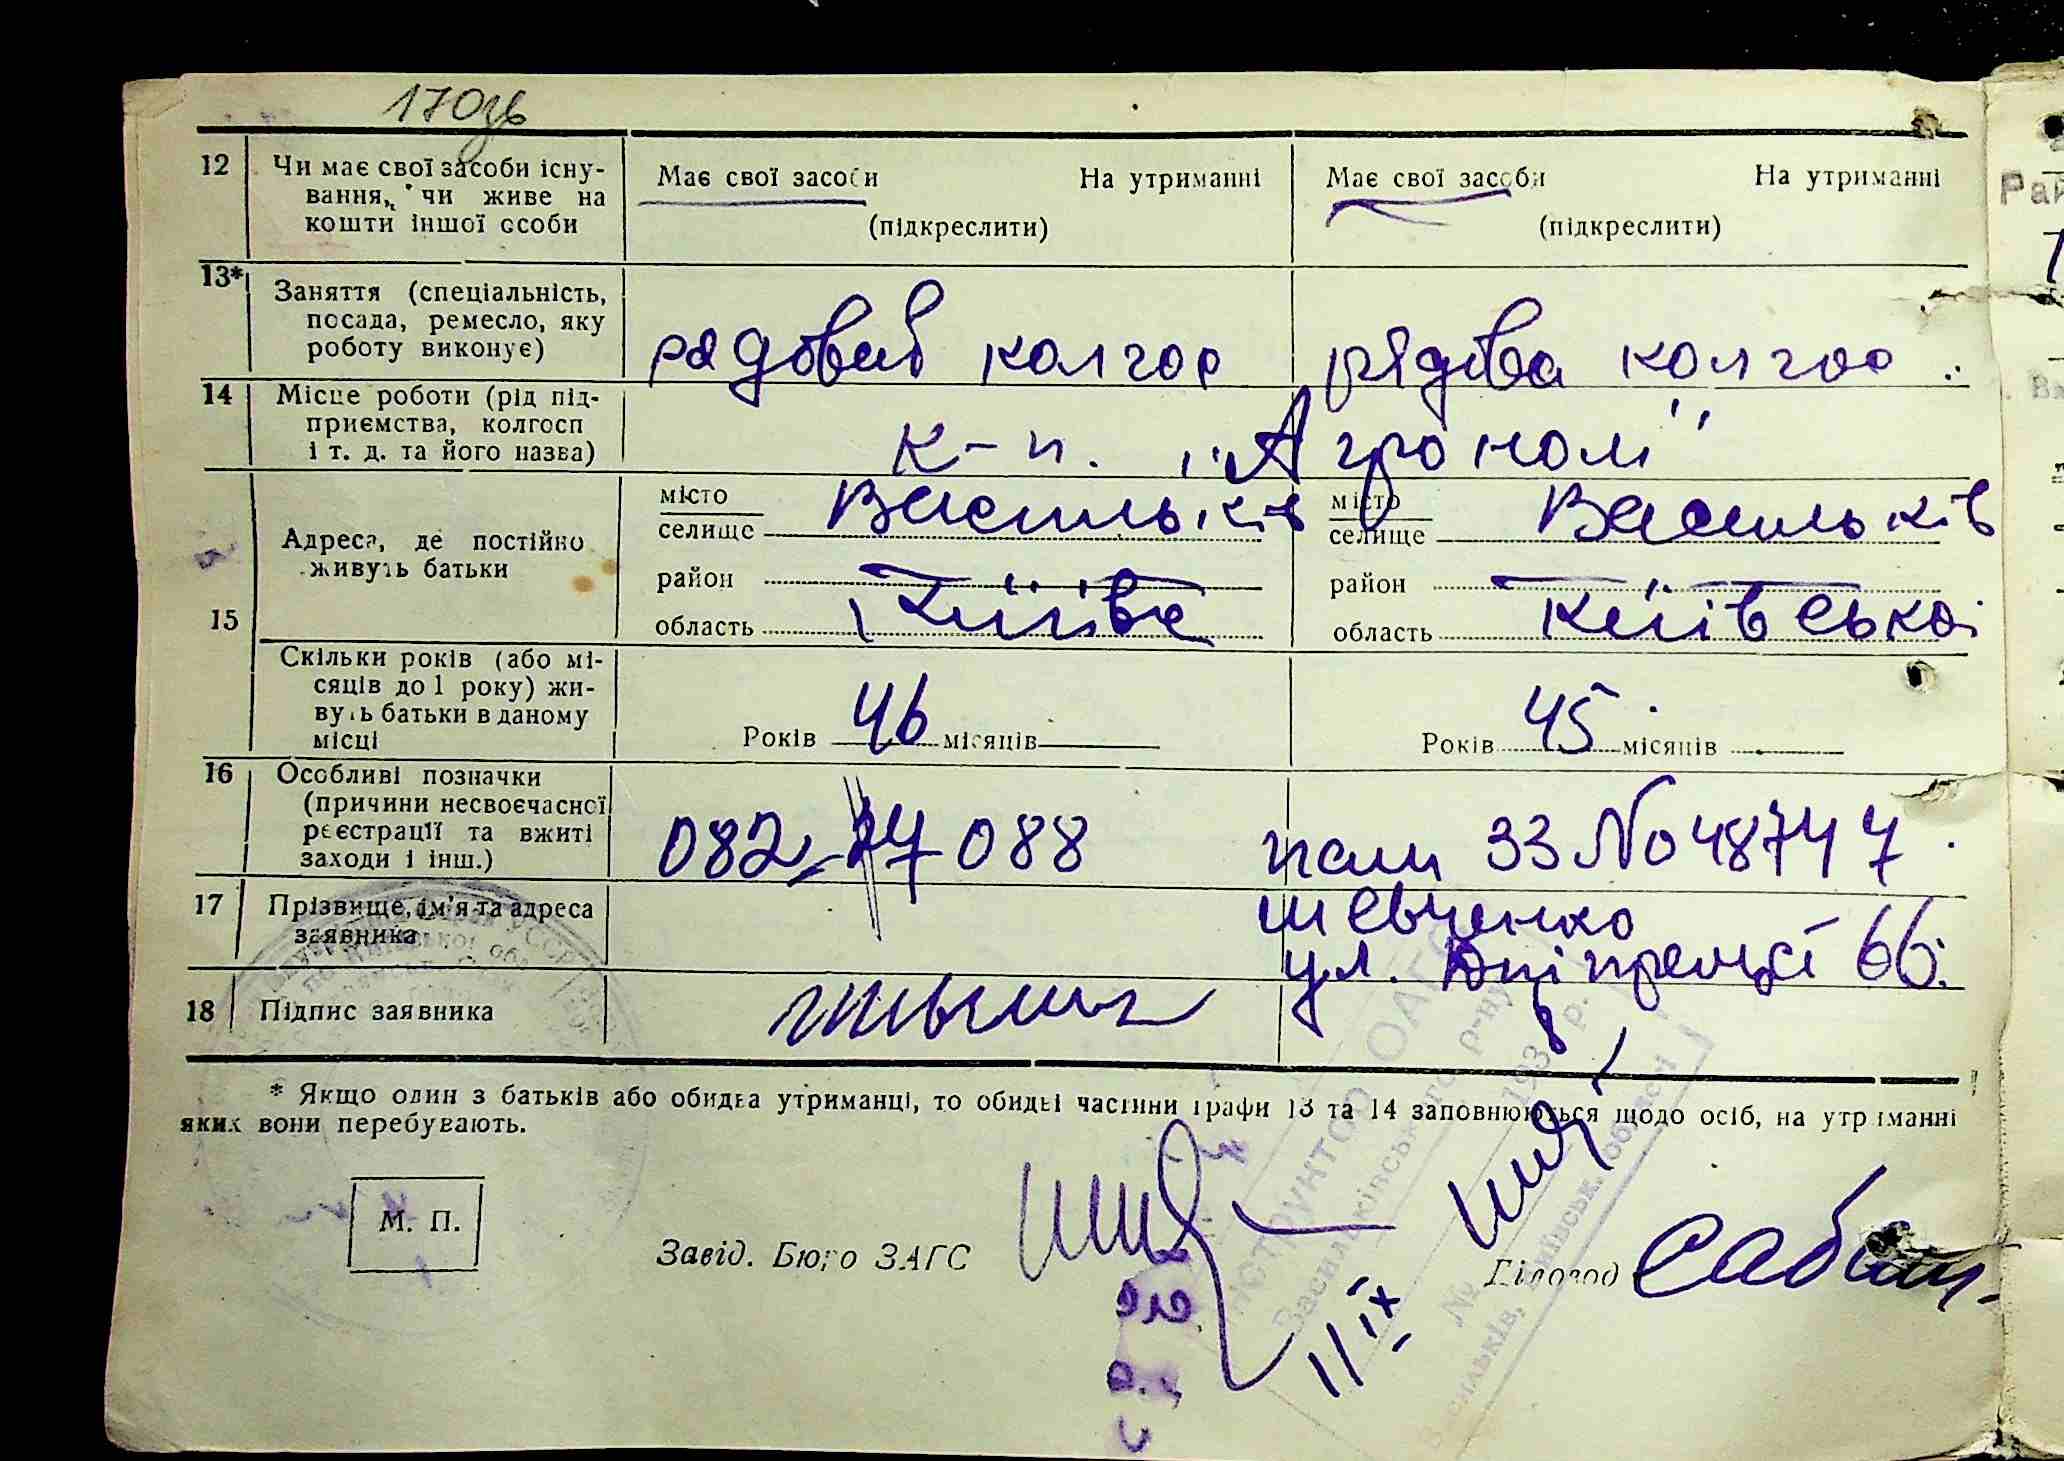 170зв
12 Чи має свої засоби існу-
вання, чи живе на
кошти іншої особи
Має свої засоби На утриманні
(підкреслити)
Має свої засоби На утриманні
(підкреслити)
13* Заняття (спеціальність,
посада, ремесло, яку
роботу виконує)
рядовий колгос
рядова колгос.
14 Місце роботи (рід під-
приємства, колгосп
і т. д. та його назва)
к-п. "Агроном"
15 Адреса, де постійно
живуть батьки
місто
селище Васильків
район
область Київс
місто
селище Васильків
район
область Київська
Скільки років (або мі-
сяців до 1 року) жи-
вуть батьки в даному
місці
Років 46 місяців
Років 45 місяців
16 Особливі позначки
(причини несвоєчасної
реєстрації та вжиті
заходи і інш.)
082 088
33 No 48747
17 Прізвище, ім'я та адреса
заявника
Шевченко
ул. 66.
18 Підпис заявника
* Якщо один з батьків або обидва утриманці, то обидві частини графи 13 та 14 заповнюються щодо осіб, на утриманні
яких вони перебувають.
М. П.
Завід. Бюро ЗАГС
Діловод
11/IX